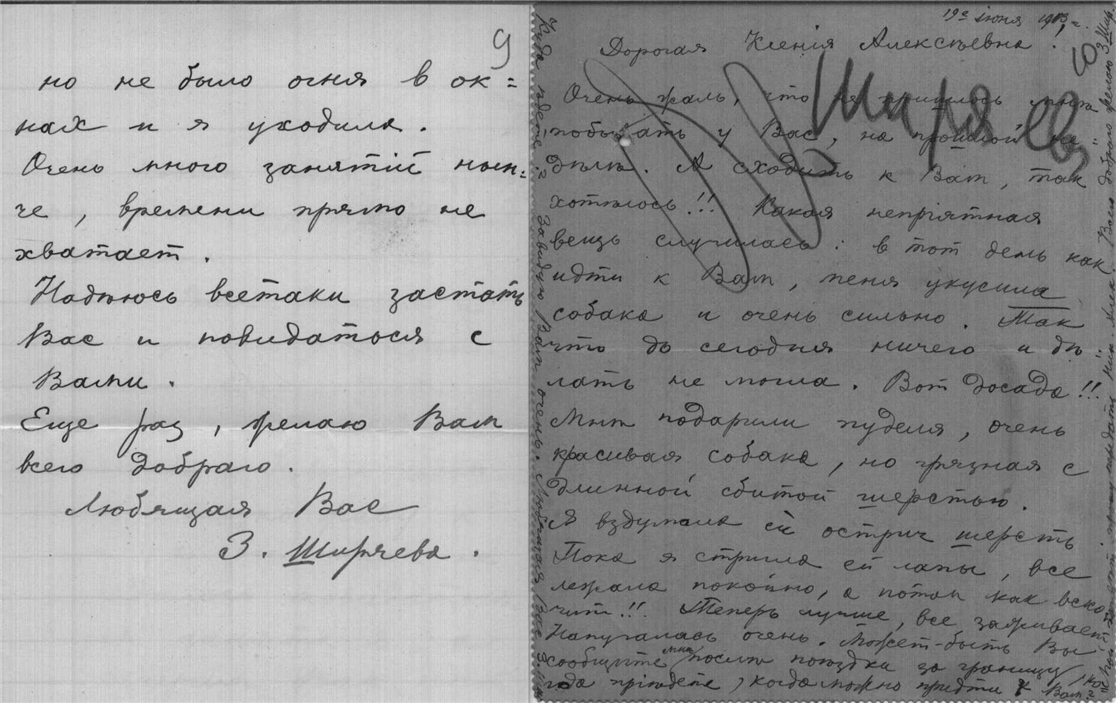 9
но не было огня в ок=
нах и я уходила.
Очень много занятій нын=
че, времени прямо не
хватает.
Надѣюсь всетаки застать
Вас и повидаться с
Вами.
Еще раз, желаю Вам
всего добраго.
Любящая Вас
З. Ширяева.
10
19го іюня
Дорогая Ксенія Алексѣевна!
Ширяев
Очень жаль, что не пришлось мнѣ
побывать у Вас, на прошлой не
дѣлѣ. А сходить к Вам, так
хотѣлось!! Какая непріятная
вещь случилась: в тот день как
идти к Вам, меня укусила
собака и очень сильно. Так
что до сегодня ничего и дѣ
лать не могла. Вот досада!!
Мнѣ подарили пуделя, очень
красивая собака, но грязная с
длинной сбитой шерстью.
Я вздумала ей остричь шерсть
Пока я стригла ей лапы, все
лежала покойно, а потом как вско
чит!! Теперь лучше, все заживает
Напугалась очень. Может-быть Вы
сообщите мнѣ послѣ поѣздки за границу, ко
гда пріѣдете, когда можно придти к Вам
завидую Вам очень. Любящая Вас